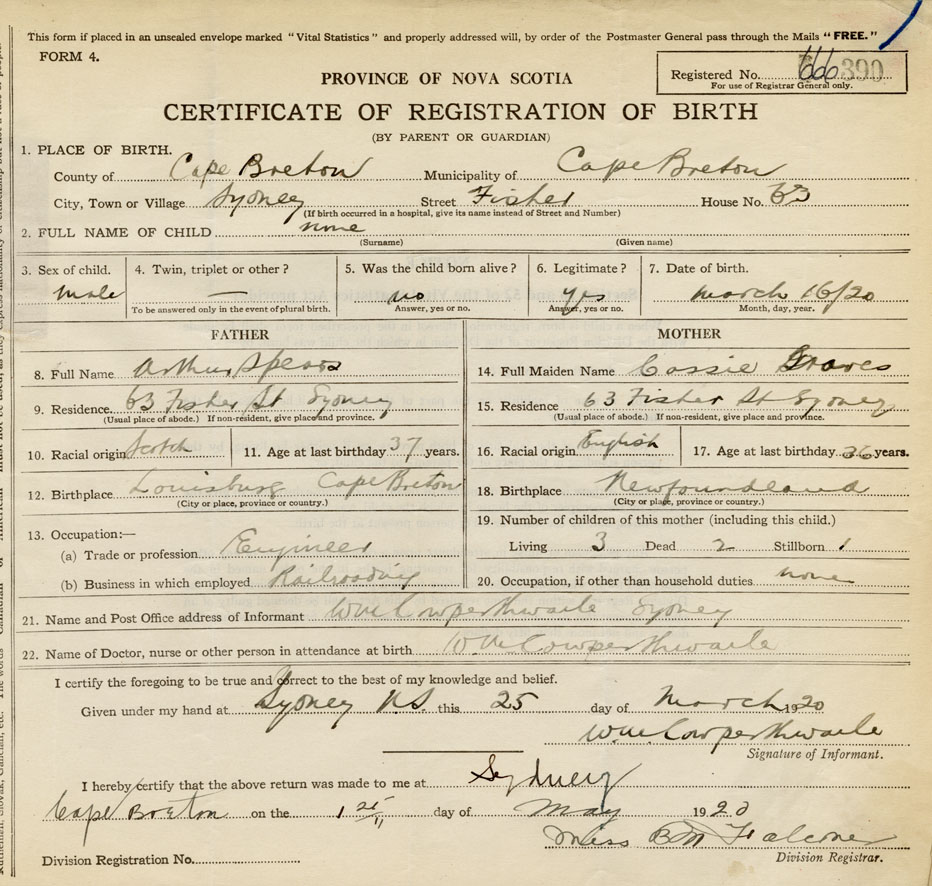 This form if placed in an unsealed envelope marked "Vital Statistics" and properly addressed will, by order of the Postmaster General pass through the Mails "FREE."
FORM 4.
PROVINCE OF NOVA SCOTIA
Registered No. 666 390
For use of Registrar General only.
CERTIFICATE OF REGISTRATION OF BIRTH
(BY PARENT OR GUARDIAN)
1. PLACE OF BIRTH.
County of Cape Breton Municipality of Cape Breton
City, Town or Village Sydney Street Fisher House No. 63
(If birth occurred in a hospital, give its name instead of Street and Number)
2. FULL NAME OF CHILD none
(Surname) (Given name)
3. Sex of child. 4. Twin, triplet or other? 5. Was the child born alive? 6. Legitimate? 7. Date of birth.
male — no yes March 16/20
To be answered only in the event of plural birth. Answer, yes or no. Answer, yes or no. Month, day, year.
FATHER MOTHER
8. Full Name Arthur Spears 14. Full Maiden Name Cassie Graves
9. Residence 63 Fisher St Sydney 15. Residence 63 Fisher St Sydney
(Usual place of abode.) If non-resident, give place and province. (Usual place of abode.) If non-resident, give place and province.
10. Racial origin Scotch 11. Age at last birthday 37 years. 16. Racial origin English 17. Age at last birthday 36 years.
12. Birthplace Louisburg Cape Breton 18. Birthplace Newfoundland
(City or place, province or country.) (City or place, province or country.)
19. Number of children of this mother (including this child.)
13. Occupation:—
(a) Trade or profession Engineer Living 3 Dead 2 Stillborn 1
(b) Business in which employed Railroading 20. Occupation, if other than household duties none
21. Name and Post Office address of Informant Wm Cowperthwaite Sydney
22. Name of Doctor, nurse or other person in attendance at birth W.M. Cowperthwaite
I certify the foregoing to be true and correct to the best of my knowledge and belief.
Given under my hand at Sydney N.S. this 25 day of March 1920
Wm Cowperthwaite
Signature of Informant.
I hereby certify that the above return was made to me at Sydney
Cape Breton on the 1st day of May 1920
Miss B M Falconer
Division Registrar.
Division Registration No.